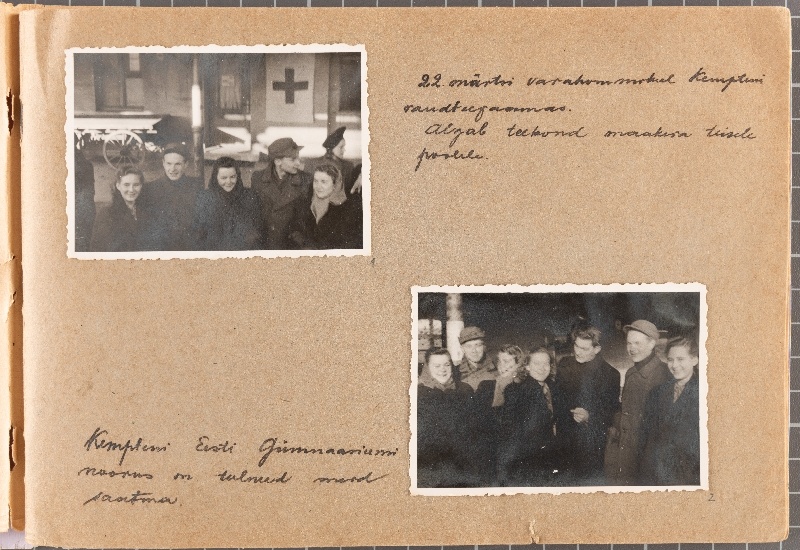 22 märtsi varahommikul Kempteni
raudteejaamas.
Algab teekond maakera teisele
poolele.
Kempteni Eesti Gümnaasiumi
noorus on tulnud meid
saatma.
2